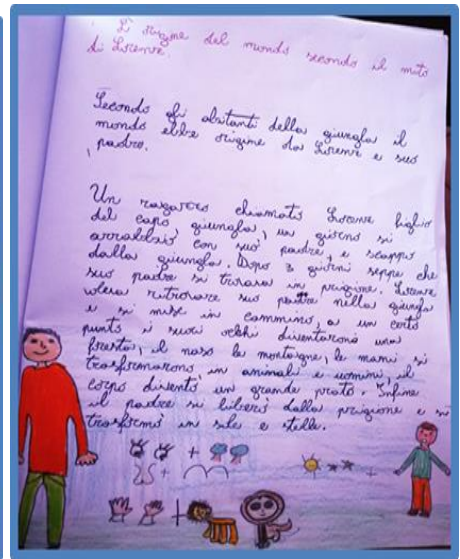 L'origine del mondo secondo il mito
di Lorenz.
Secondo gli abitanti della giungla il
mondo ebbe origine da Lorenz e suo
padre.
Un ragazzo chiamato Lorenz figlio
del capo giungla, un giorno si
arrabbiò con suo padre, e scappò
dalla giungla. Dopo 3 giorni seppe che
suo padre si trovava in prigione. Lorenz
voleva ritrovare suo padre nella giungla
e si mise in cammino, a un certo
punto i suoi occhi diventarono una
foresta, il naso le montagne, le mani si
trasformarono in animali e uomini, il
corpo diventò un grande prato. Infine
il padre si liberò dalla prigione e si
trasformò in sole e stelle.